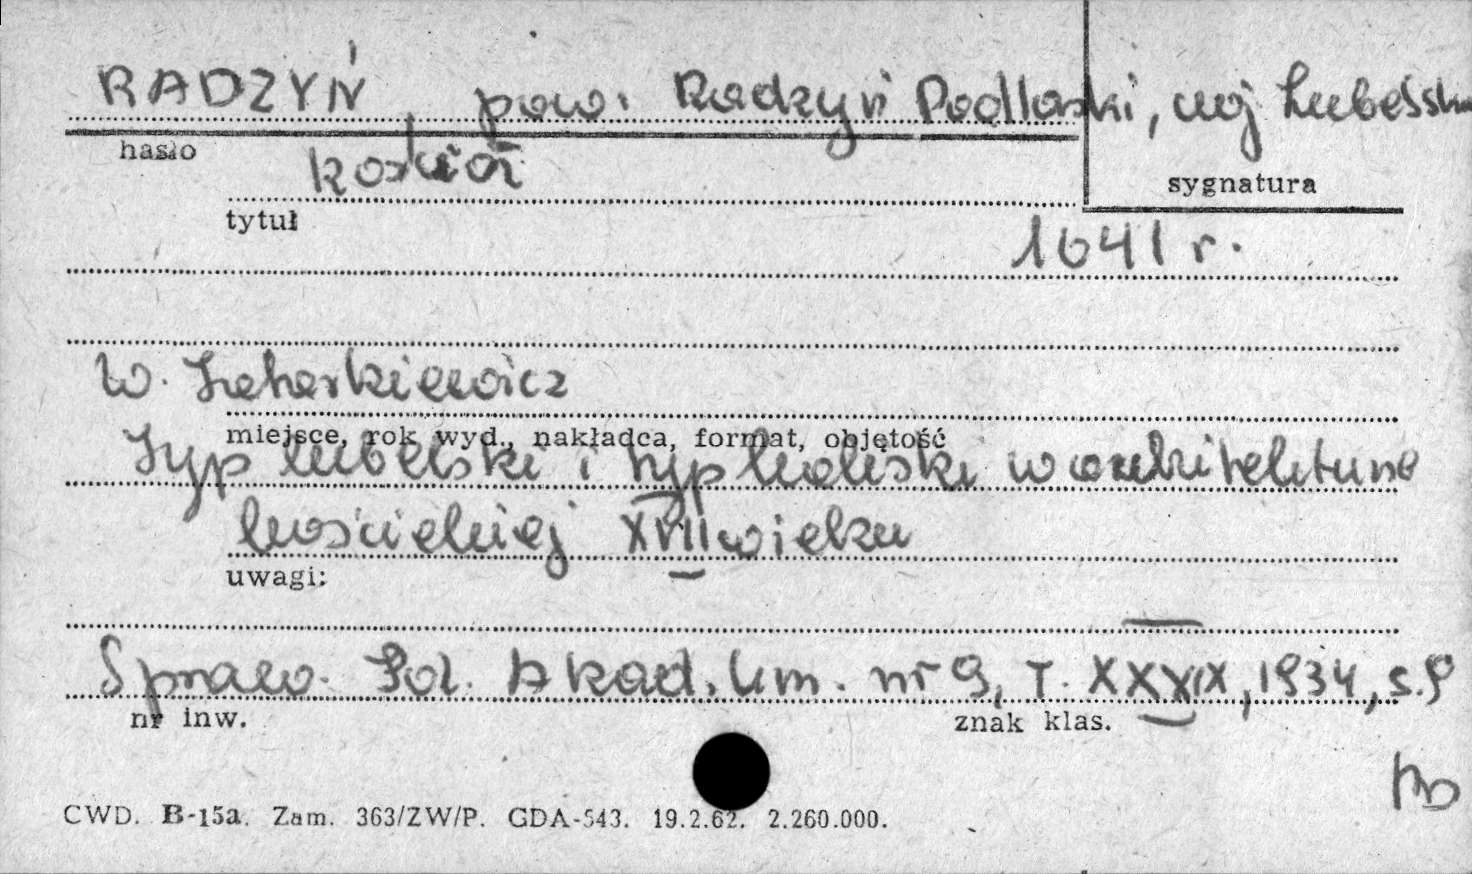 RADZYŃ, pow. Radzyń Podlaski, woj Lubelskie
hasło
kościół
sygnatura
tytuł
1641 r.
W. Tatarkiewicz
miejsce, rok wyd., nakładca, format, objętość
Typ lubelski i typ kaliski w architekturze
kościelnej XVII wieku
uwagi:
Spraw. Pol. Akad. Um. nr 9, T. XXXIX, 1934, s. 9
nr inw.
znak klas.
CWD. B-15a. Zam. 363/ZW/P. GDA-543. 19.2.62. 2.260.000.